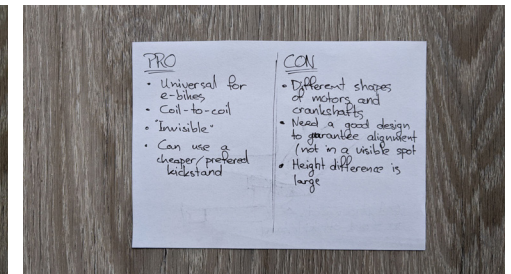 PRO
• Universal for
e-bikes
• Coil-to-coil
• "Invisible"
• Can use a
cheaper/prefered
kickstand
CON
• Different shapes
of motors and
crankshafts
• Need a good design
to garantee alignment
(not in a visible spot
• Height difference is
large